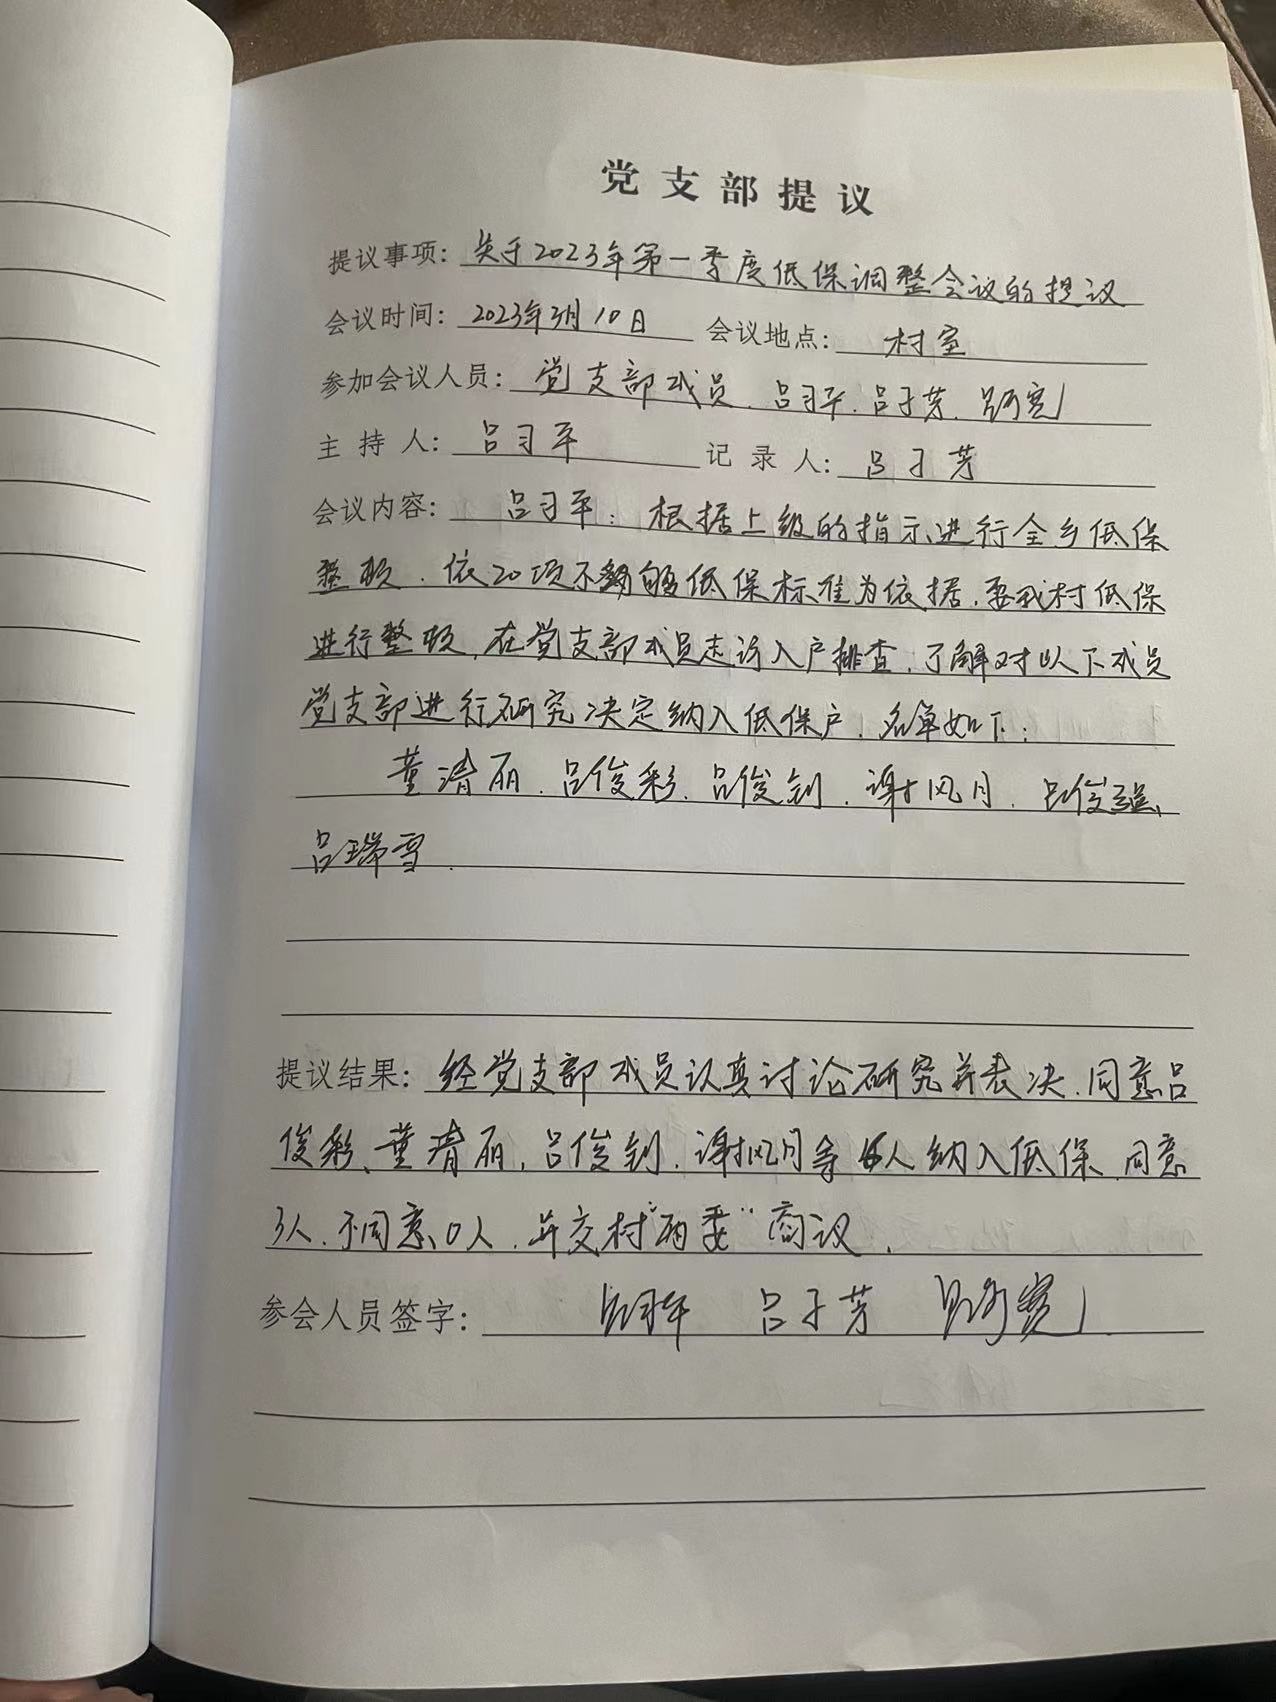 党支部提议
提议事项: 关于2023年第一季度低保调整会议的提议
会议时间: 2023年3月10日 会议地点: 村室
参加会议人员: 党支部成员、吕习平、吕子芳、
主持人: 吕习平 记录人: 吕子芳
会议内容: 吕习平: 根据上级的指示进行全乡低保
整顿、依20项不能够低保标准为依据,要我村低保
进行整顿,在党支部成员走访入户排查,了解对以下成员
党支部进行研究决定纳入低保户,名单如下:
董清丽、吕俊彩、吕俊钊、谢风月、吕俊强、
吕瑞雪.
提议结果: 经党支部成员认真讨论研究并表决,同意吕
俊彩、董清丽,吕俊钊、谢风月等6人纳入低保,同意
3人,不同意0人,并交村"两委"商议.
参会人员签字: 吕习平 吕子芳